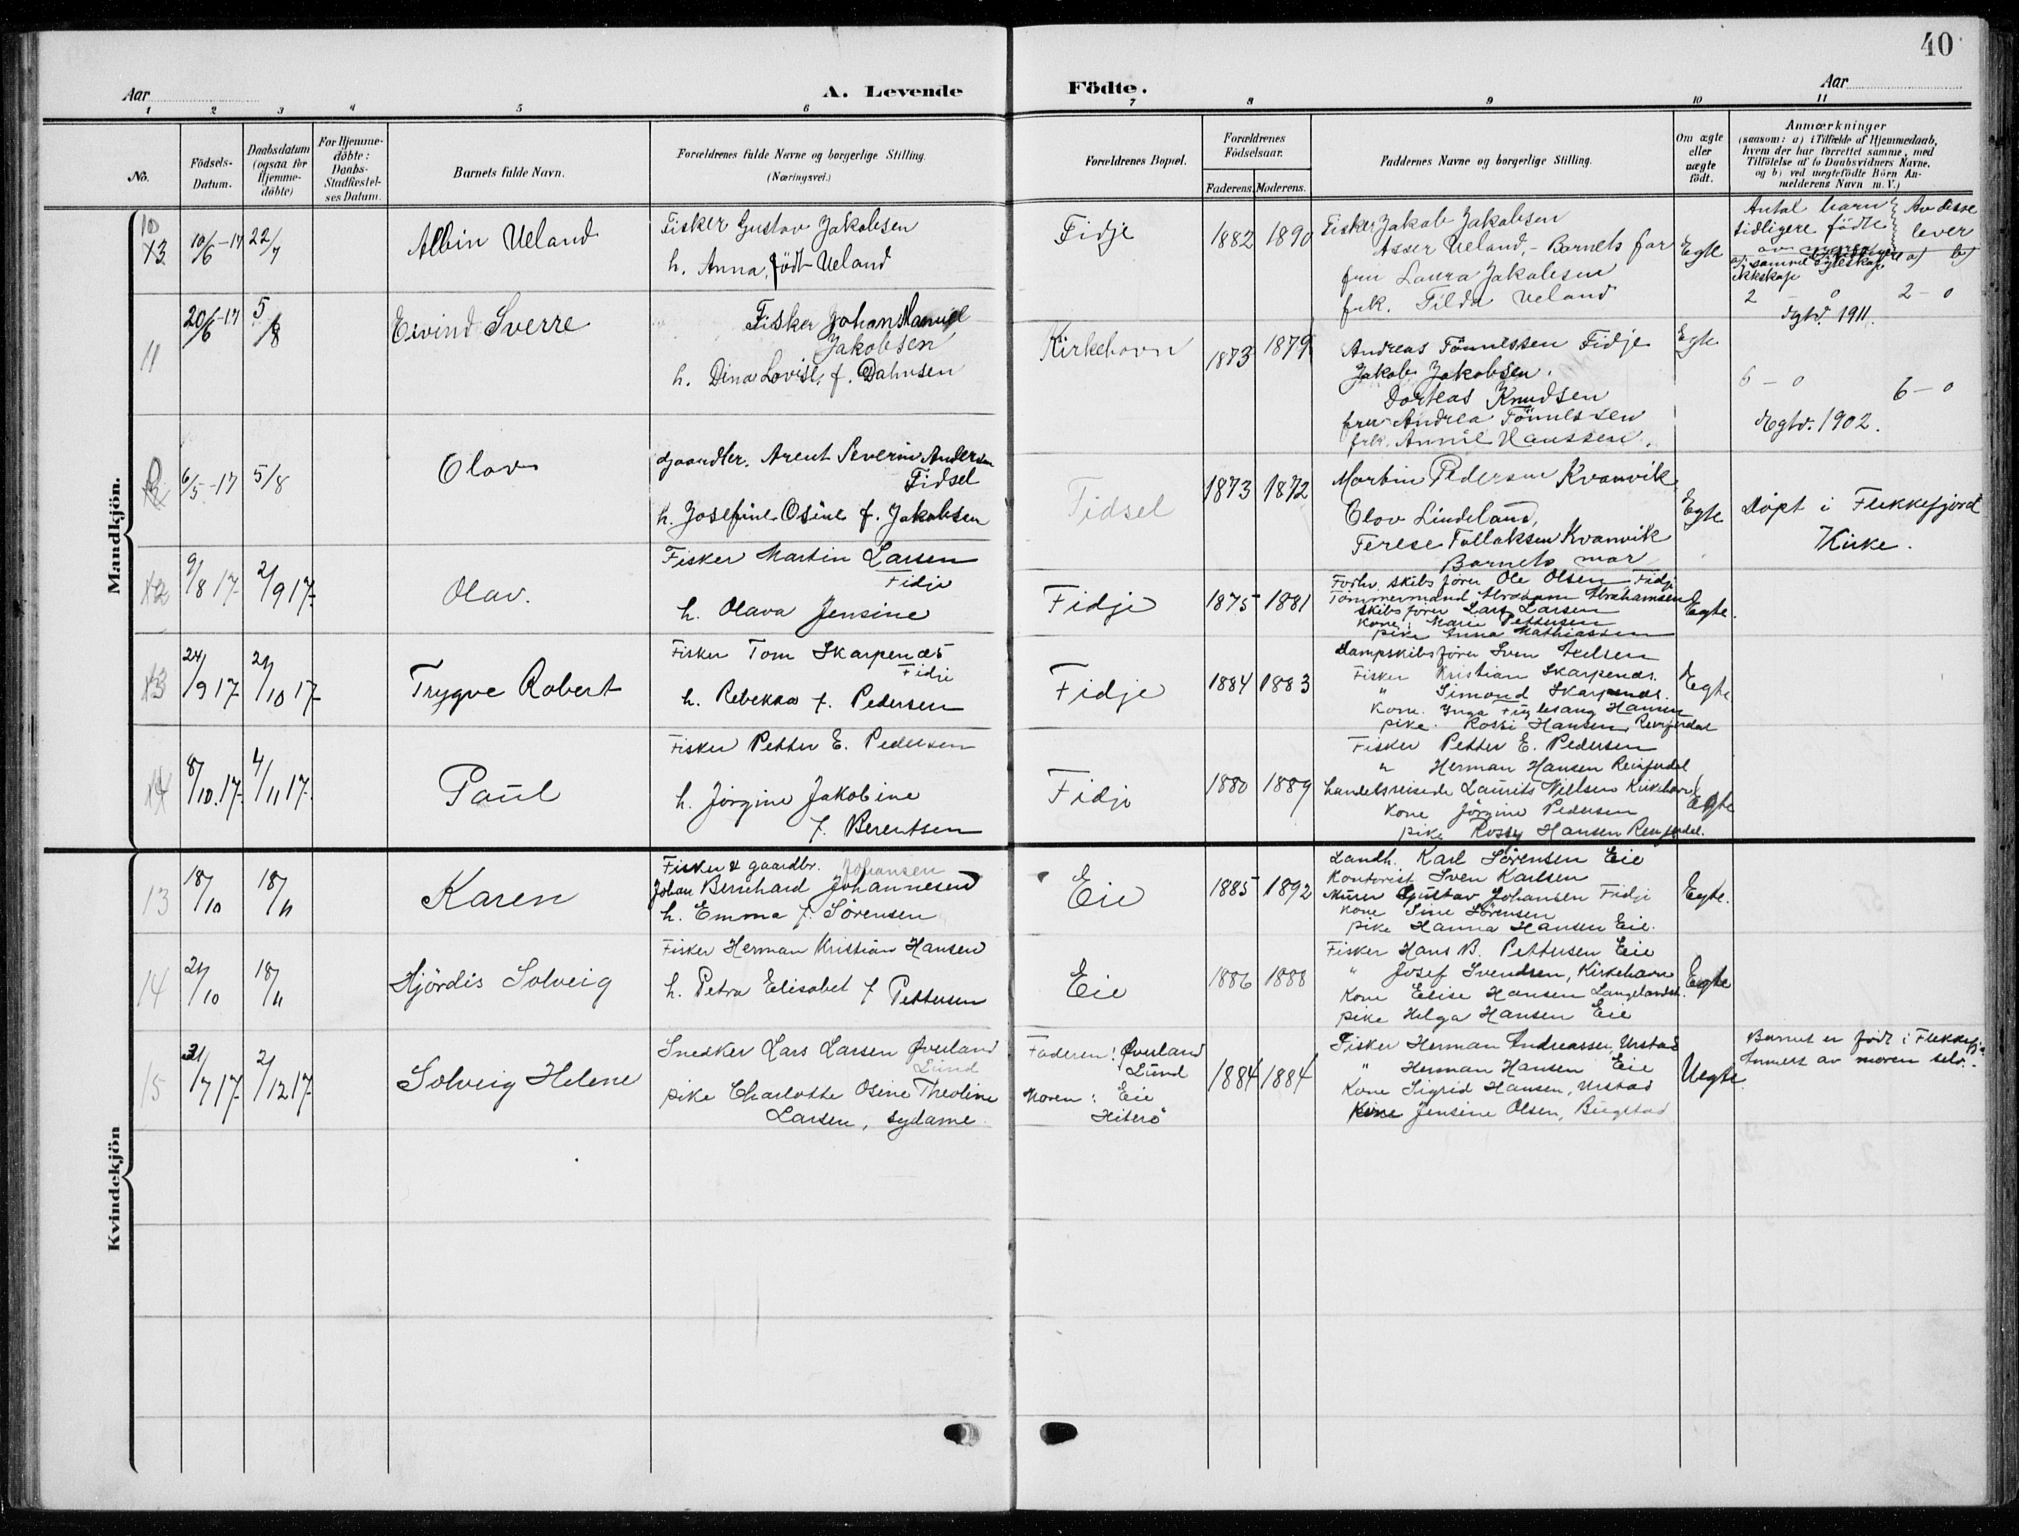 40
Aar
A. Levende
Födte.
Aar
1 2 3 4 5 6 7 8 9 10 11
No.
Födsels-
Datum.
Daabsdatum
(ogsaa for
Hjemme-
döbte)
For Hjemme-
döbte:
Daabs-
Stadfæstel-
ses Datum.
Barnets fulde Navn.
Forældrenes fulde Navne og borgerlige Stilling.
(Næringsvei.)
Forældrenes Bopæl.
Forældrenes
Födselsaar.
Faderens. Moderens.
Faddernes Navne og borgerlige Stilling.
Om ægte
eller
uægte
født.
Anmærkninger
(saasom: a) i Tilfælde af Hjemmedaab,
hvem der har forrettet samme, med
Tilföielse af to Daabsvidners Navne,
og b) ved uægtefödte Börn An-
melderens Navn m. V.)
Mandkjön.
10
10/6-17 22/7
Albin Ueland
Fisker Gustav Jakobsen
h. Anna, født Ueland
Fidje
1882 1890
Fisker Jakob Jakobsen
Asser Ueland, - Barnets far
fru Laura Jakobsen
frk. Tilda Ueland
Egte
Antal barn
tidligere fødte
Av disse
lever
a) b)
2 - 0 2 - 0
Egtv. 1911.
11
20/6-17 5/8
Eivind Sverre
Fisker Johan Samuel
Jakobsen
h. Dina Lovise, f. Dahnsen
Kirkehavn
1873 1879
Andreas Tönnessen Fidje
Jakob Jakobsen.
Dorteas Knudsen
fru Andrea Tönnessen
frk. Annie Hanssen.
Egte
6 - 0 6 - 0
Egtv. 1902.
6/5-17 5/8
Olav
Gaardbr. Arent Severin Andersen
Fidsel
h. Josefine Osine f. Jakobsen
Fidsel
1873 1872
Martin Pedersen Kvanvik
Olov Lindeland,
Terese Tollaksen Kvanvik
Barnets mor
Egte
Døpt i Flekkefjord
Kirke.
12
9/8 17. 2/9 17.
Olav.
Fisker Martin Larsen
Fidje
h. Olava Jensine
Fidje
1875 1881
Forhv. skibsfører Ole Olsen Fidje
Tømmermand Abraham Abrahamsen
Skibsfører Lars Larsen
Kone: Marie Pettersen
pike Anna Mathiassen
Egte.
13
24/9 17. 21/10 17.
Trygve Robert
Fisker Tom Skarpenæs
Fidje
h. Rebekka f. Pedersen
Fidje
1884 1883
Dampskibsfører Sven Axelsen
Fisker Kristian Skarpenæs.
" Simond Skarpenæs.
Kone. Inga Fuglesang Hansen
pike. Rossi Hansen Reisjerdal
Egte
14
8/10.17. 4/11 17.
Paul
Fisker Petter E. Pedersen
h. Jørgine Jakobine
f. Berentsen
Fidje
1880 1889
Fisker Petter E. Pedersen
" Herman Hansen
Handelsreisede Laurits Nielsen Kirkehavn
Kone Jørgine Pedersen
pike Rossy Hansen
Egte
Kvindekjön
13
18/10 18/11
Karen
Fisker & gaardbr. Johansen
Johan Bernhard Johannesen
h. Emma f. Sørensen
Eie
1885 1892
Landh. Karl Sørensen Eie
Kontorist Sven Karlsen
Murer Gustav Johansen Fidje
Kone Sine Sørensen
pike Hanna Hansen Eie.
Egte.
14
21/10 18/11
Hjördis Solveig
Fisker Herman Kristian Hansen
h. Petra Elisabet f Pettersen
Eie
1886 1888
Fisker Hans B. Pettersen Eie
" Josef Svendsen, Kirkehavn
Kone Elise Hansen
pike Helga Hansen Eie
Egte
15
21/7 17. 2/12 17.
Solveig Helene
Snedker Lars Larsen Øverland
Lund
pike Charlotte Osine Theoline
Larsen, sydame.
Faderen: Øverland
Lund
Moren: Eie
Hiterö
1884 1884
Fisker Herman Andreassen, Urstad
" Herman Hansen Eie
Kone Sigrid Hansen, Urstad
Kone Jensine Olsen, Buestad
Uegte.
Barnet er født i Flekkefj.
Anmelt av moren selv.